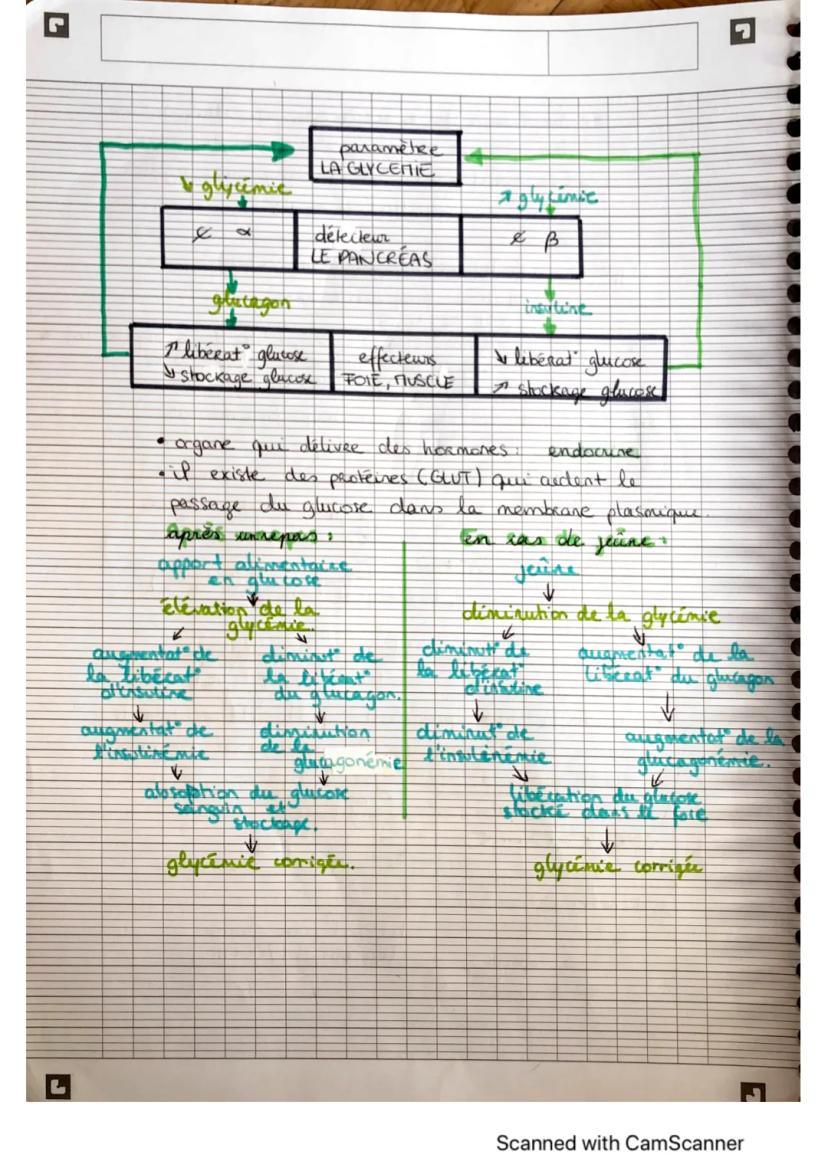 paramètre
LA GLYCEMIE
↘ glycémie
↗ glycémie
¢ α
détecteur
LE PANCRÉAS
¢ β
glucagon
insuline
↗ libérat° glucose
↘ stockage glucose
effecteurs
FOIE, MUSCLE
↘ libérat° glucose
↗ stockage glucose
• organe qui délivre des hormones : endocrine
• il existe des protéines (GLUT) qui aident le
passage du glucose dans la membrane plasmique.
après un repas :
apport alimentaire
en glucose
↓
élévation de la
glycémie.
↙ ↘
augmentat° de
la libérat°
d'insuline
diminut° de
la libérat°
du glucagon.
↓ ↓
augmentat° de
l'insulinémie
diminution
de la
glucagonémie
↘ ↓
absorption du glucose
sanguin et
stockage.
↓
glycémie corrigée.
En cas de jeûne :
jeûne
↓
diminution de la glycémie
↙ ↘
diminut° de
la libérat°
d'insuline
augmentat° de la
libérat° du glucagon
↓ ↓
diminut° de
l'insulinémie
augmentat° de la
glucagonémie.
↘ ↙
libération du glucose
stocké dans le foie
↓
glycémie corrigée
Scanned with CamScanner